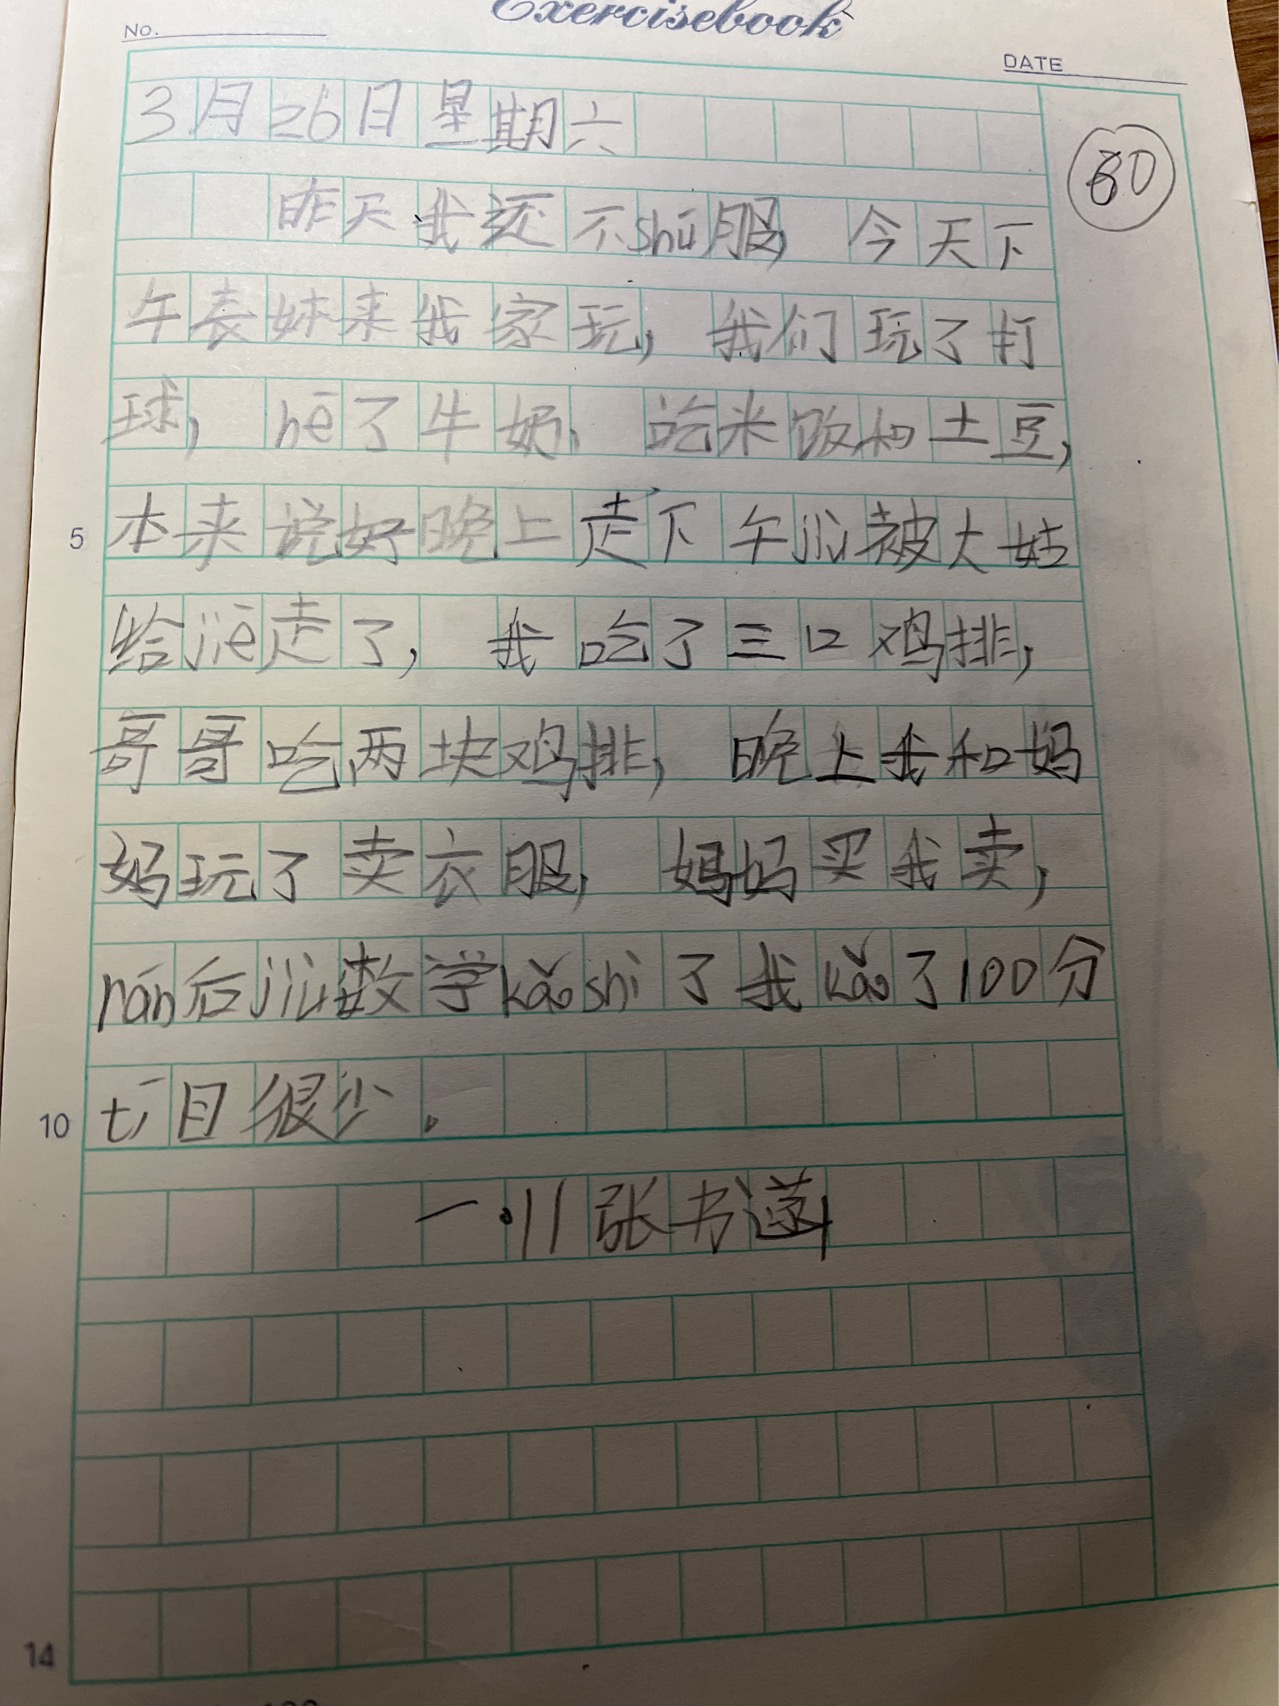 Exercisebook
NO.
DATE
3月26日星期六
80
昨天我还不shū服，今天下
午表妹来我家玩，我们玩了打
球，hē了牛奶、吃米饭和土豆，
5
本来说好晚上走下午jiù被大姑
给jiē走了，我吃了三口鸡排，
哥哥吃两块鸡排，晚上我和妈
妈玩了卖衣服，妈妈买我卖，
rán后jiù数学kǎoshì了我kǎo了100分
10
tí目很少。
一.11张书
14